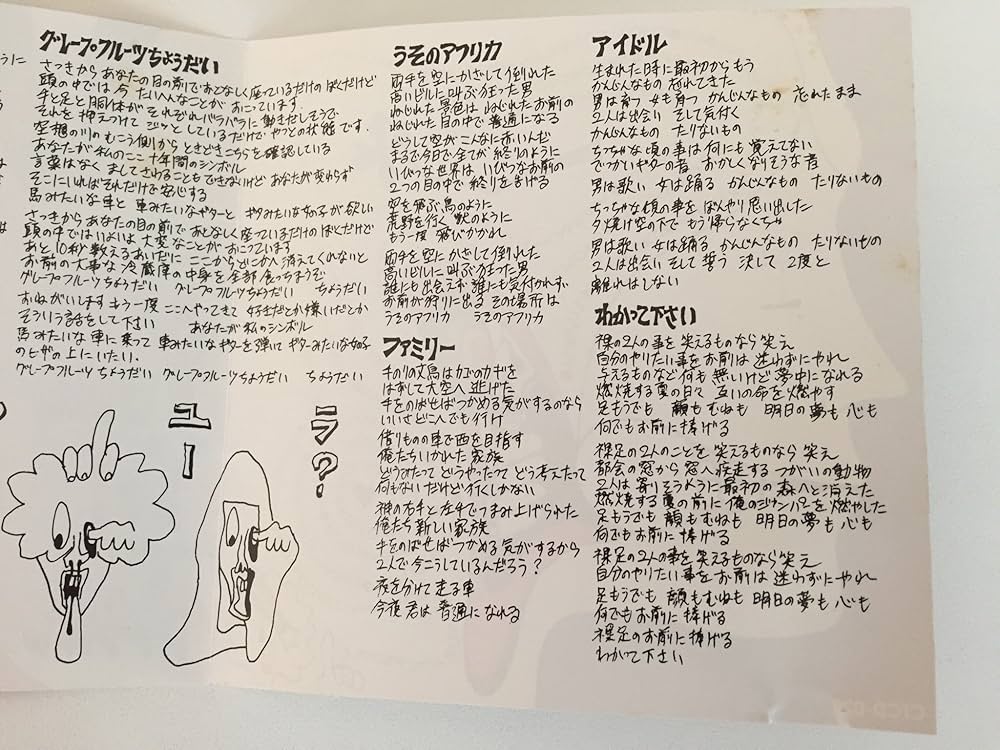 グレープフルーツちょうだい
さっきからあなたの目の前でおとなしく座っているだけのぼくだけど
頭の中では今 たいへんなことが おこっています
手と足と胴体が それぞれバラバラに動きだしそうで
それを 押えつけて ジッとしているだけで やっとの状態です.
空想の川のむこう側から ときどきこちらを確認している
あなたが私のここ十年間のシンボル
言葉はなく ましてさわることもできないけど あなたが変わらず
そこにいればそれだけで安心する
馬みたいな車と 車みたいなギターと ギタみたいな女の子が欲しい
さっきからあなたの目の前で おとなしく座っているだけのぼくだけど
頭の中ではいよいよ 大変なことが おこっています
あと10秒数えるあいだに ここからどこかへ消えてくれないと
お前の大事な 冷蔵庫の中身を全部 食っちまうぞ
グレープフルーツちょうだい グレープフルーツちょうだい ちょうだい
おねがいします もう一度 ここへやってきて 好きだとか嫌いだとか
そういう話をして下さい あなたが 私のシンボル
馬みたいな 車に乗って 車みたいな ギターを弾いて ギターみたいな女の子
のヒザの上にいたい.
グレープフルーツ ちょうだい グレープフルーツちょうだい ちょうだい
うそのアフリカ
両手を空にかざして倒れた
高いビルに叫ぶ狂った男
ねじれた景色は ねじれたお前の
ねじれた目の中で 普通になる
どうして空がこんなに赤いんだ
まるで今日で全てが 終りのように
いびつな世界は いびつなお前の
2つの目の中で 終りを告げる
空を飛ぶ鳥のように
荒野を行く 獣のように
もう一度 飛びかかれ
両手を 空に かざして倒れた
高いビルに 叫ぶ狂った男
誰にも出会えず 誰にも気付かれず
お前が狩りに出る その場所は
うそのアフリカ うそのアフリカ
ファミリー
はずして大空へ 逃げた
手をのばせばつかめる気がするのなら
いいさどこへでも行け
借りものの車で西を目指す
俺たちいかれた家族
どうみたって どうやったって どう考えたって
何もない だけど行くしかない
神の右手と 左手でつまみ上げられた
俺たち 新しい家族
手をのばせばつかめる 気がするから
2人で 今こうしているんだろう？
夜を分けて走る車
今夜 君は 普通に なれる
アイドル
生まれた時に最初からもう
かんじんなもの 忘れてきた
男は育つ 女も育つ かんじんなもの 忘れたまま
2人は出会い そして気付く
かんじんなもの たりないもの
ちっちゃな頃の事は何にも 覚えてない
でっかいギターの音 おかしくなりそうな音
男は歌い 女は踊る かんじんなもの たりないもの
ちっちゃな頃の事を ぼんやり思い出した
夕焼け空の下で もう帰らなくちゃ
男は歌い 女は踊る かんじんなもの たりないもの
2人は出会い そして 誓う 決して 2度と
離れはしない
わかって下さい
裸の2人の事を 笑えるものなら 笑え
自分のやりたい事を お前は 迷わずにやれ
与えるものなど何も 無いけど夢中になれる
燃焼する夏の日々 互いの命を 燃やす
足もうでも 顔もむねも 明日の夢も 心も
何でもお前に捧げる
裸足の2人のことを 笑えるものなら 笑え
都会の窓から 窓へ疾走する つがいの動物
2人は寄りそうように 最初の 森へと消えた
燃焼する夏の前に 俺のジャンパーを 燃やした
足もうでも 顔もむねも 明日の夢も 心も
何でもお前に 捧げる
裸足の2人の事を 笑えるものなら 笑え
自分のやりたい事を お前は 迷わずにやれ
足もうでも 顔もむねも 明日の夢も 心も
何でもお前に 捧げる
裸足のお前に 捧げる
わかって下さい
ユー
ラ？